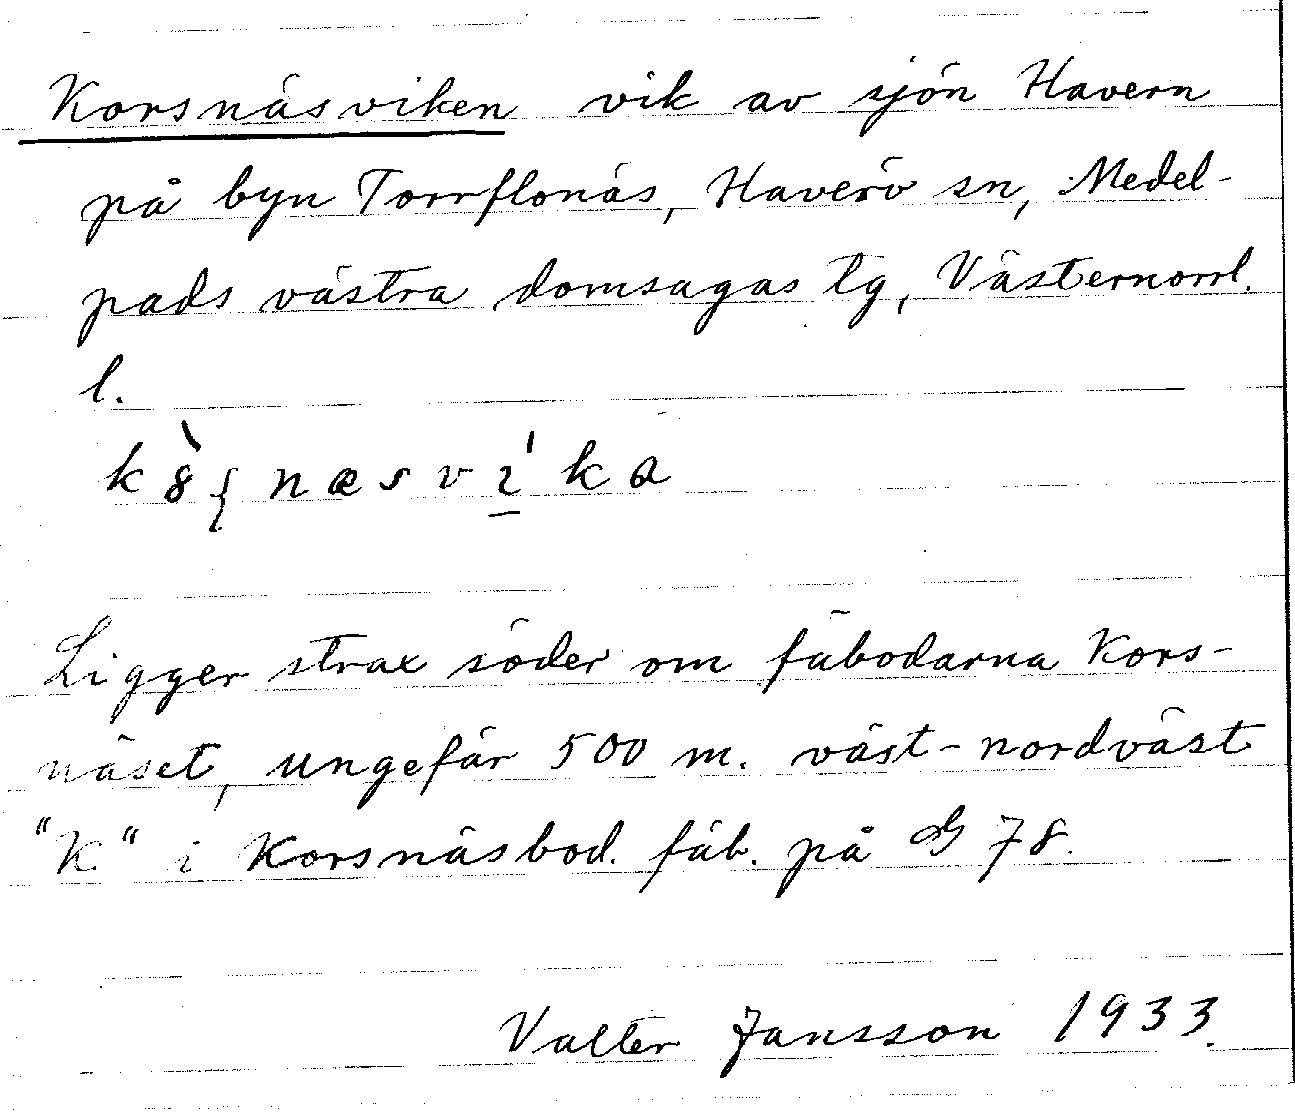 Korsnäsviken vik av sjön Havern
på byn Torrflonäs, Haverö sn, Medel-
pads västra domsagas tg, Västernorrl.
l.
k8̀ʃnæsvı̲́ka
Ligger strax söder om fäbodarna Kors-
näset, ungefär 500 m. väst-nordväst
"K" i Korsnäsbod. fäb. på G 78.
Valter Jansson 1933.